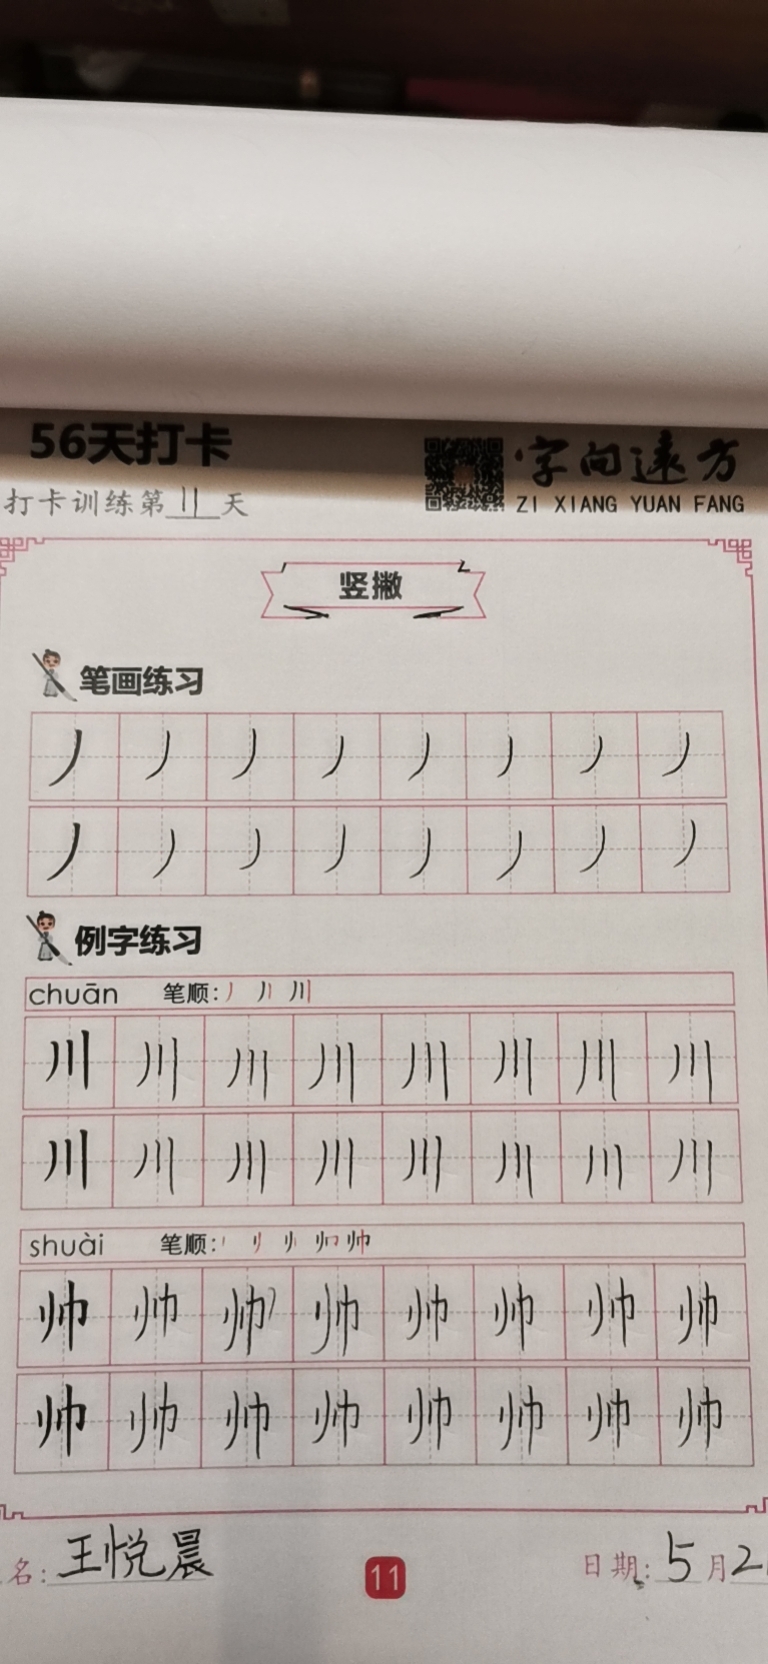 56天打卡
字向远方
ZI XIANG YUAN FANG
打卡训练第11天
竖撇
笔画练习
丿 丿 丿 丿 丿 丿 丿 丿
丿 丿 丿 丿 丿 丿 丿 丿
例字练习
chuān 笔顺: 丿 丿丨 川
川 川 川 川 川 川 川 川
川 川 川 川 川 川 川 川
shuài 笔顺: 帅
帅 帅 帅 帅 帅 帅 帅 帅
帅 帅 帅 帅 帅 帅 帅 帅
名: 王悦晨
11
日期: 5月2